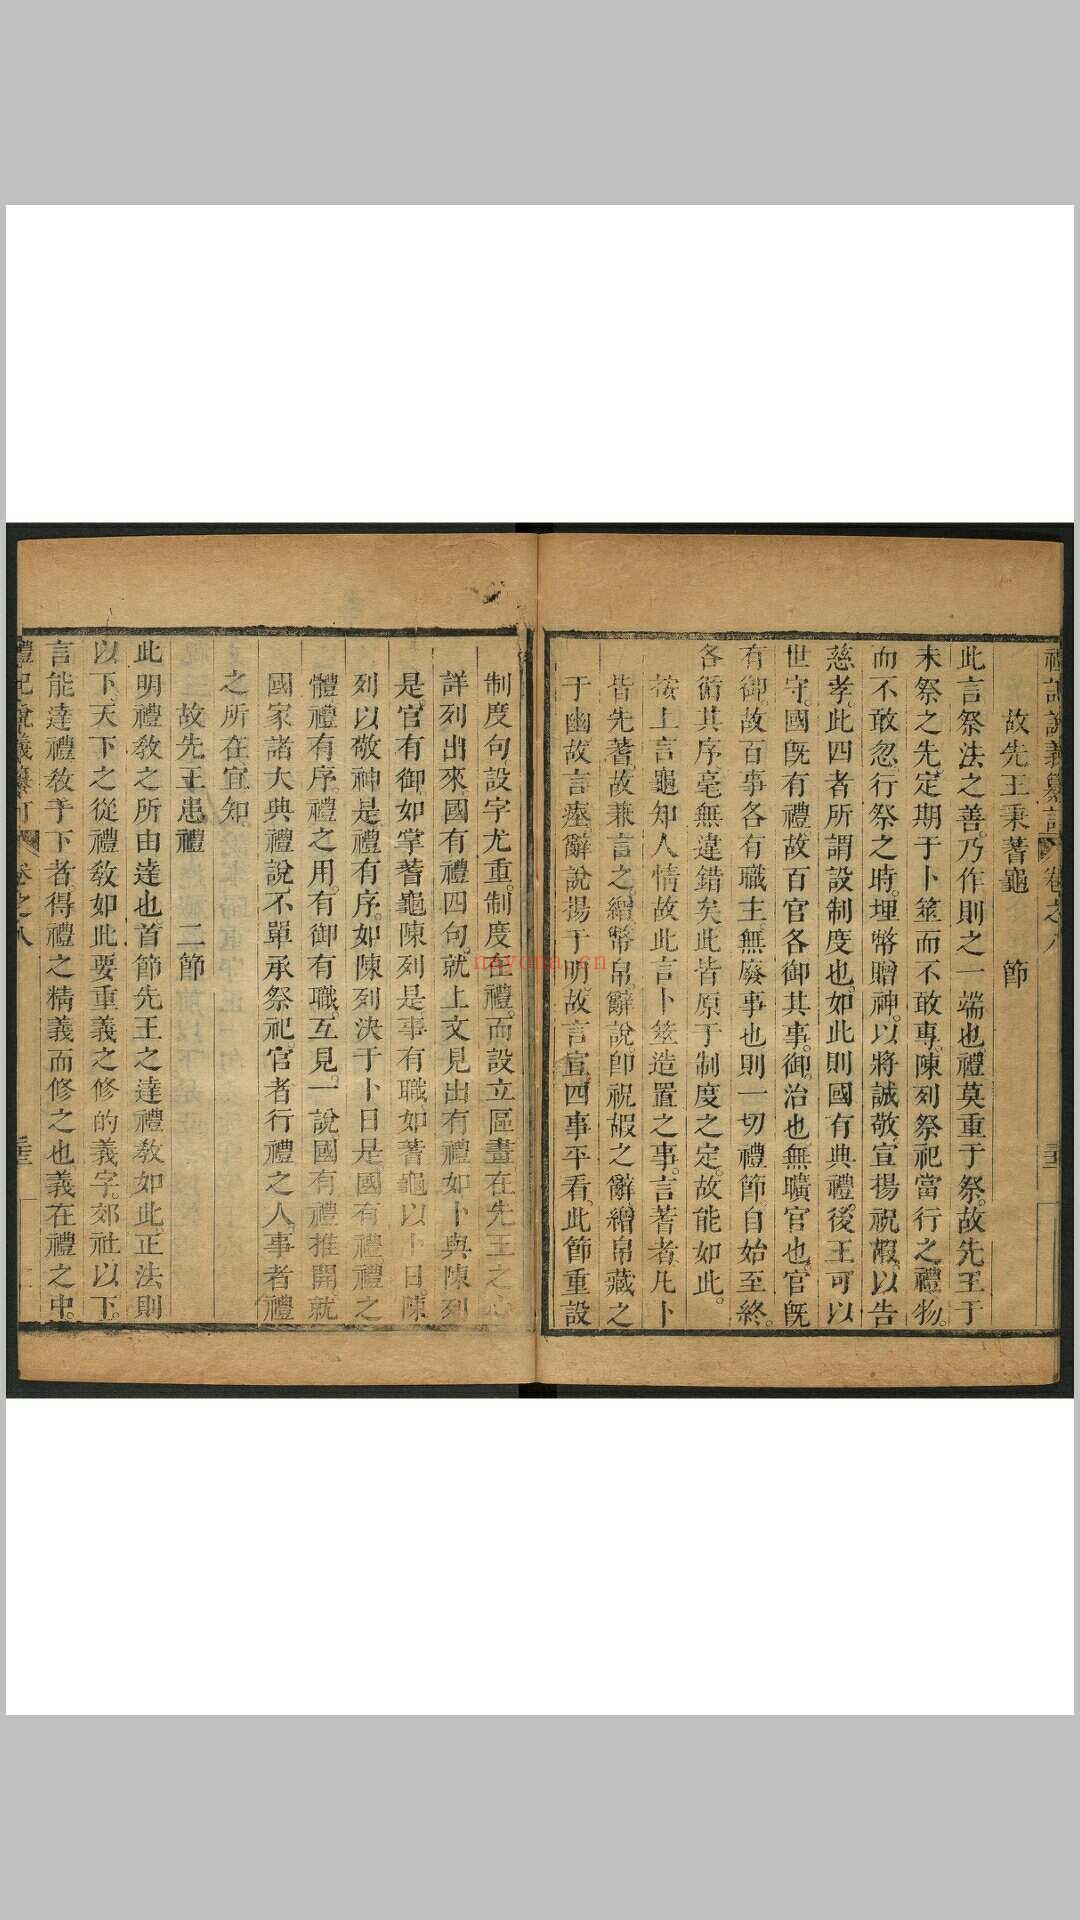 禮記說義纂訂 卷之八
故先王秉蓍龜 節
此言祭法之善乃作則之一端也禮莫重于祭故先王于
未祭之先定期于卜筮而不敢專陳列祭祀當行之禮物
而不敢忽行祭之時埋幣贈神以將誠敬宣揚祝嘏以告
慈孝此四者所謂設制度也如此則國有典禮後王可以
世守國既有禮故百官各御其事御治也無曠官也官既
有御故百事各有職主無廢事也則一切禮節自始至終
各循其序毫無違錯矣此皆原于制度之定故能如此
按上言龜知人情故此言卜筮造置之事言蓍者凡卜
皆先蓍故兼言之繒幣帛辭說即祝嘏之辭繒帛藏之
于幽故言瘞辭說揚于明故言宣四事平看此節重設
制度句設字尤重制度在禮而設立區畫在先王之心
詳列出來國有禮四句就上文見出有禮如卜與陳列
是官有御如掌蓍龜陳列是事有職如蓍龜以卜日陳
列以敬神是禮有序如陳列決于卜日是國有禮禮之
體禮有序禮之用有御有職互見一說國有禮推開就
國家諸大典禮說不單承祭祀官者行禮之人事者禮
之所在宜知
故先王患禮 二節
此明禮教之所由達也首節先王之達禮教如此正法則
以下天下之從禮教如此要重義之修的義字郊社以下
言能達禮教于下者得禮之精義而修之也義在禮之中
禮記說義纂訂 卷之八
nayona.cn